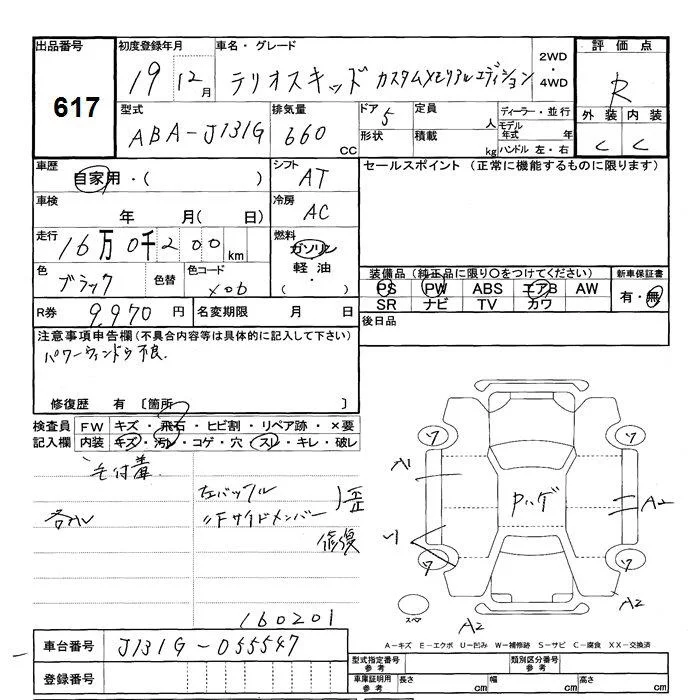 出品番号
617
初度登録年月
19 12月
車名・グレード
テリオスキッド カスタムメモリアルエディション
2WD
・
4WD
評価点
R
外装 内装
C C
型式
ABA-J131G
排気量
660
CC
ドア 5
形状
定員
人
積載
kg
ディーラー・並行
モデル年式 年
ハンドル 左・右
車歴
自家用・( )
シフト
AT
セールスポイント (正常に機能するものに限ります)
車検
年 月( 日)
冷房
AC
走行
16万0千200km
燃料
ガソリン
軽油・
( )
色
ブラック
色替
色コード
X06
装備品(純正品に限り○をつけてください)
PS PW ABS エアB AW
SR ナビ TV カワ
新車保証書
有・無
R券 9,970円
名変期限 月 日
後日品
注意事項申告欄(不具合内容等は具体的に記入して下さい)
パワーウィンドウ不良
修復歴 有 [箇所 ]
検査員
記入欄
FW キズ・飛石・ヒビ割・リペア跡・×要
内装 キズ・汚れ・コゲ・穴・スレ・キレ・破レ
毛付着
左バックル
〃Fサイドメンバー
歪
修復
160201
ワ ワ
A1
Pハゲ
A2
リ
ワ ワ
A2
スペア
A2
車台番号 J131G-055547
登録番号
A-キズ E-エクボ U-凹み W-補修跡 S-サビ C-腐食 XX-交換済
型式指定番号
参考
類別区分番号
参考
車庫証明用
参考
長さ cm 幅 cm 高さ cm